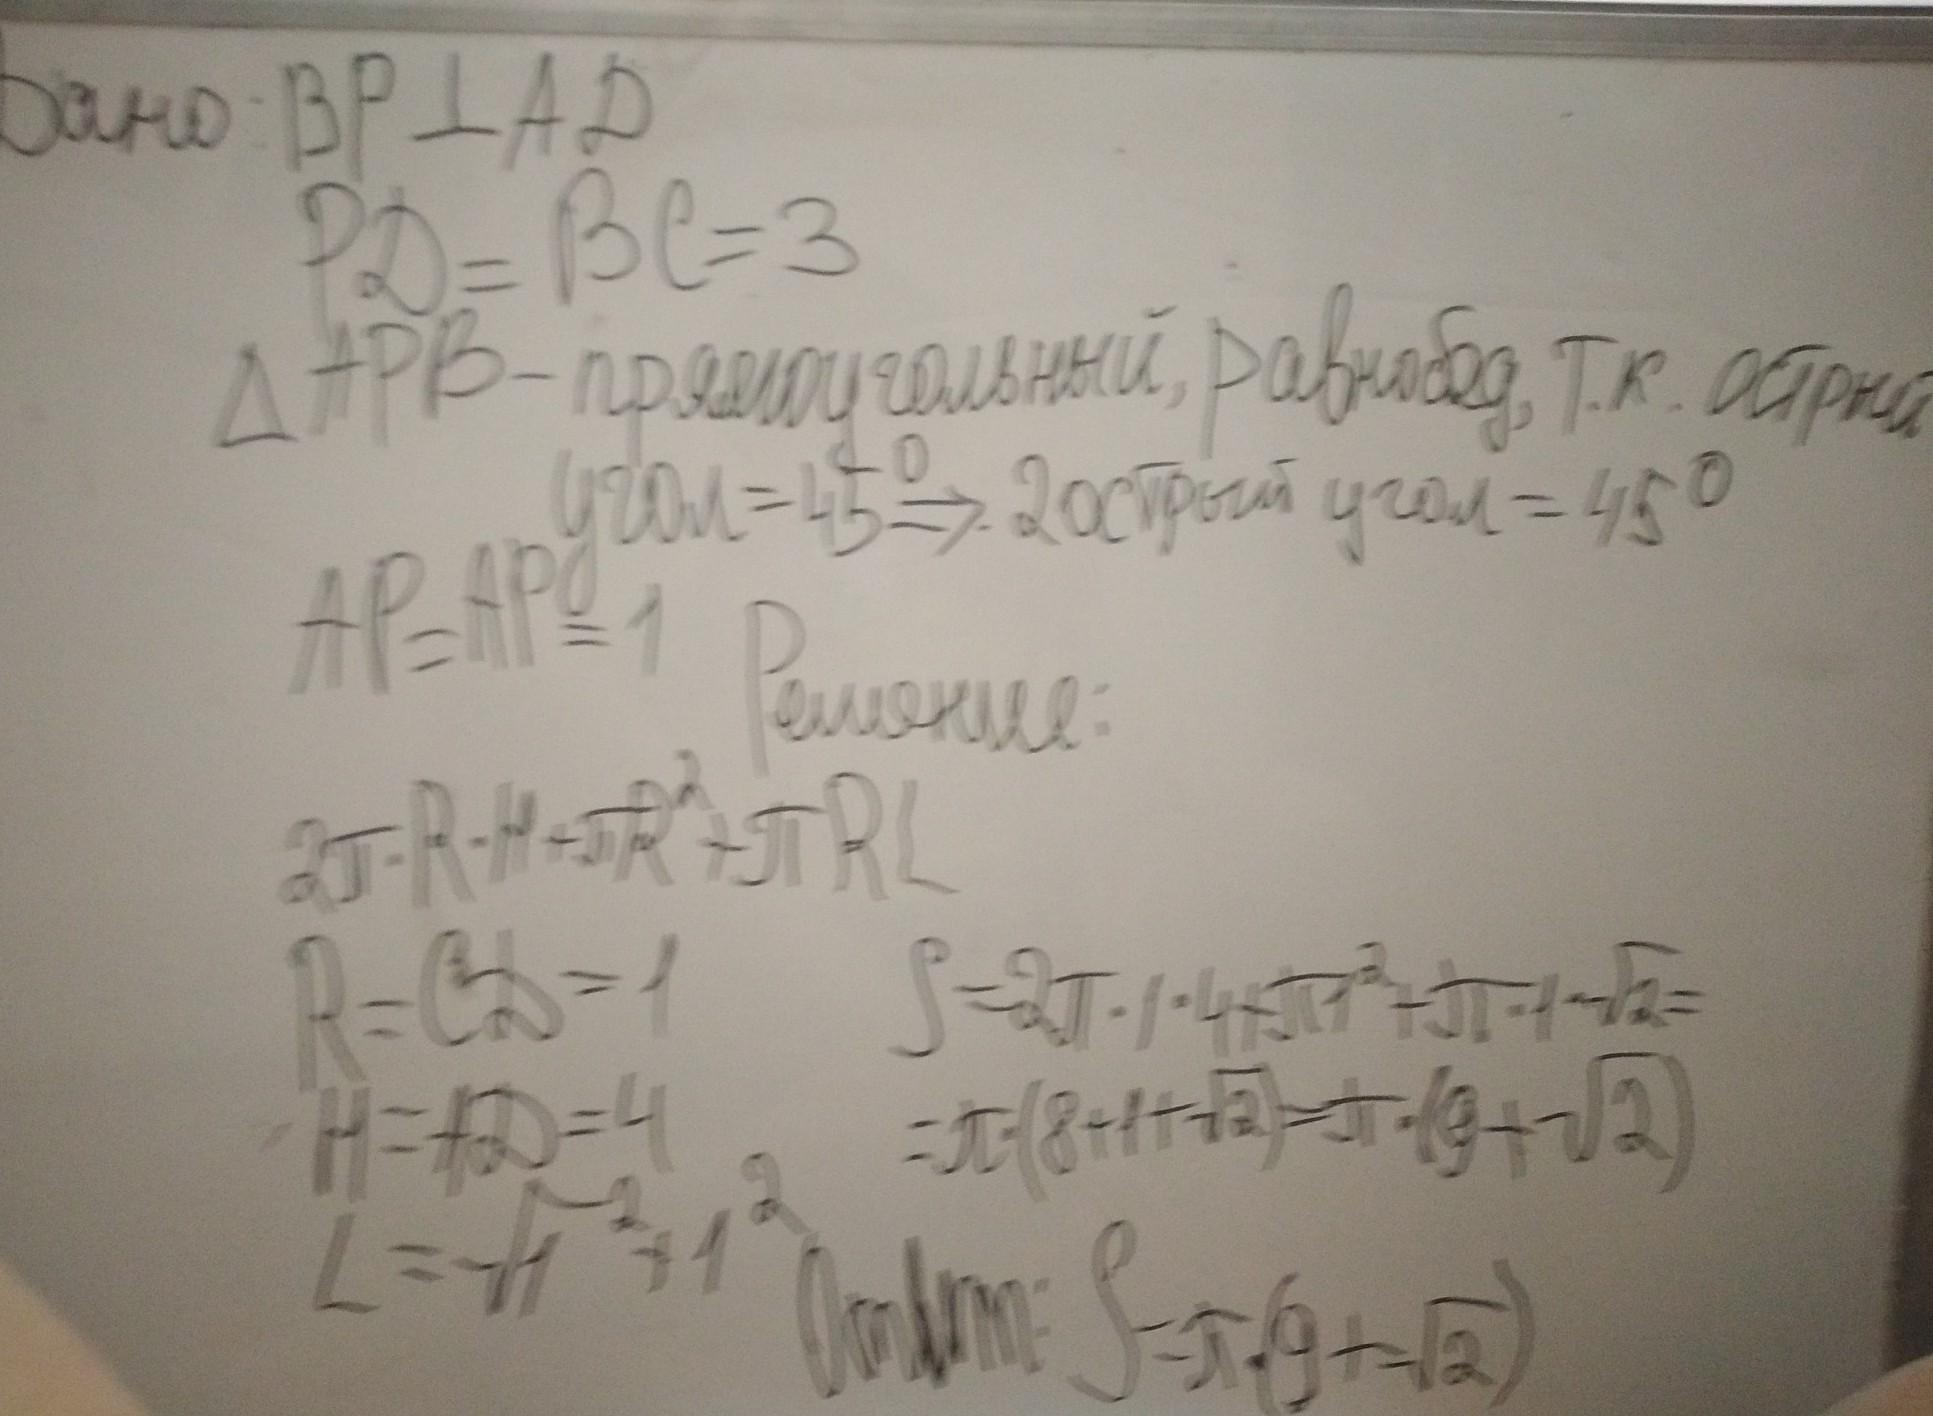 Дано: BP⊥AD
PD = BC = 3
Δ APB - прямоугольный, равнобед, т.к. острый
угол = 45° ⇒ 2 острый угол = 45°
AP = AP = 1
Решение:
2π·R·H+πR²+πRL
R = CD = 1
H = AD = 4
L = √1²+1²
S = 2π·1·4+π1²+π·1·√2 =
= π·(8+1+√2) = π·(9+√2)
Ответ: S = π·(9+√2)